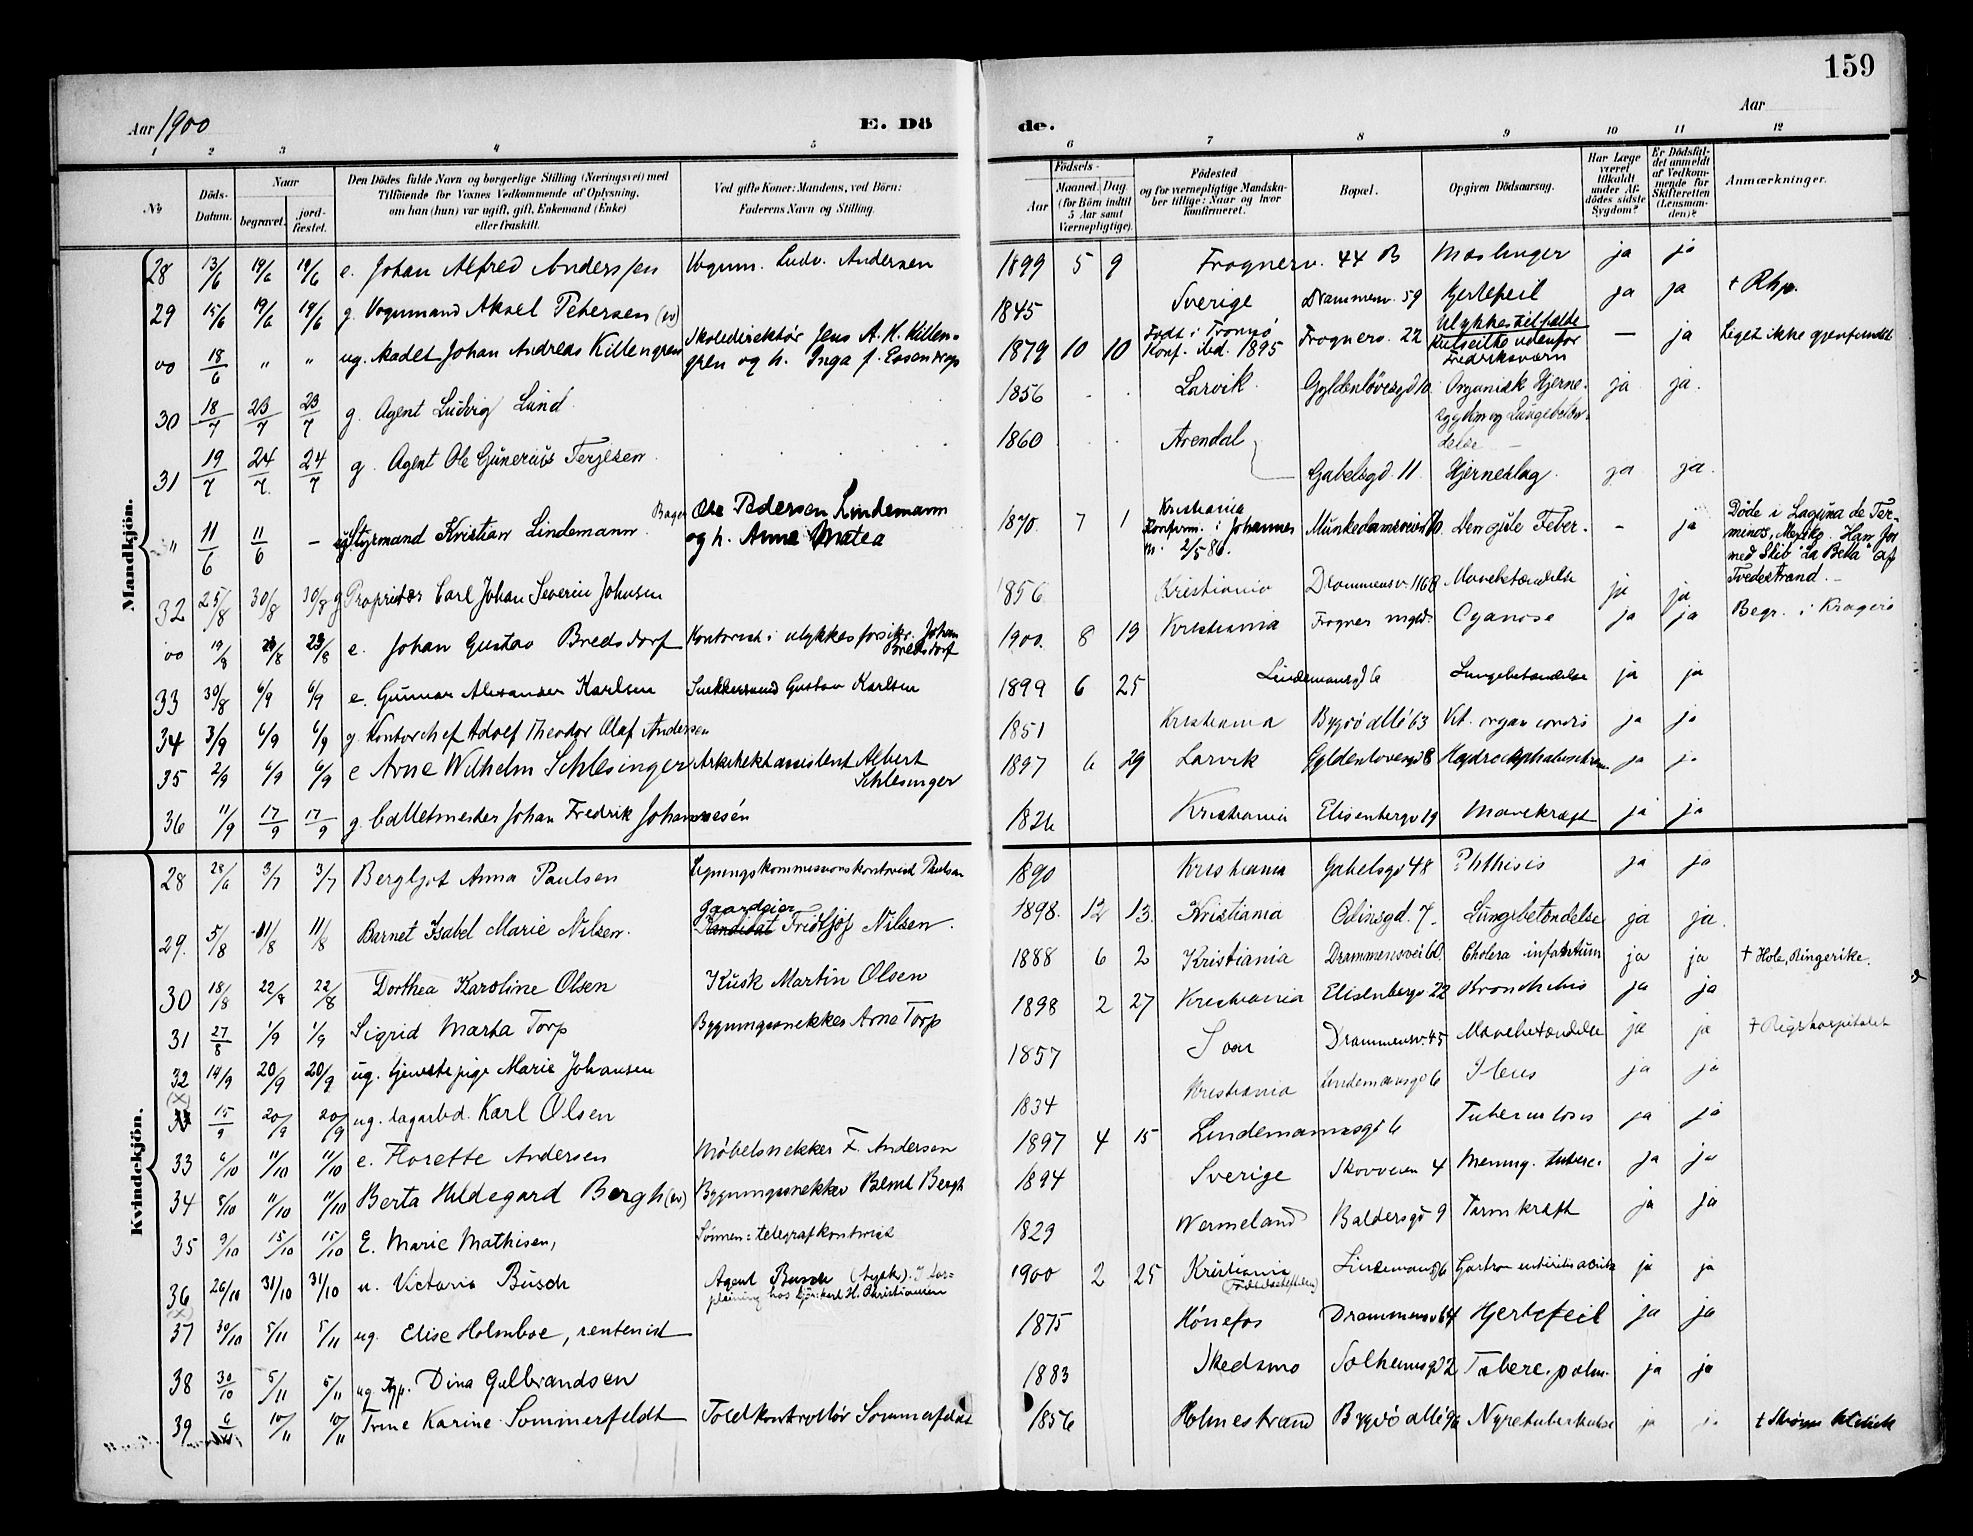 159
Aar 1900
E. Dö
de.
Aar
1 2 3 4 5 6 7 8 9 10 11 12
№
Döds-Datum.
Naar
begravet.
jord-fæstet.
Den Dödes fulde Navn og borgerlige Stilling (Næringsvei) med
Tilföiende for Voxnes Vedkommende af Oplysning,
om han (hun) var ugift, gift, Enkemand (Enke)
eller fraskilt.
Ved gifte Koner: Mandens, ved Börn:
Faderens Navn og Stilling.
Födsels-
Aar
Maaned. Dag
(for Börn indtil
5 Aar samt
Værnepligtige).
Födested
og for værnepligtige Mandska-
ber tillige: Naar og hvor
konfirmeret.
Bopæl.
Opgiven Dödsaarsag.
Har Læge
været
tilkaldt
under Af-
dödes sidste
Sygdom?
Er Dödsfal-
det anmeldt
af Vedkom-
mende for
Skifteretten
(Lensman-
den)?
Anmærkninger.
Mandkjön.
28 13/6 19/6 19/6 e. Johan Alfred Anderssen Vognm. Ludv. Andersen 1899 5 9 Frognerv. 44 B Mæslinger ja ja
29 15/6 19/6 19/6 g. Vognmand Aksel Petersen (vv) 1845 Sverige Drammensv. 59 Hjertefeil ja ja + Rhp.
oo 18/6 " " ug. Kadet Johan Andreas Killengreen Skoledirektör Jens A. H. Killen-
gren og h. Inga f. Essendrop 1879 10 10 Födt i Tromsö
Konf. ibd. 1895 Frognerv. 22 Ulykkestilfælde
Kutseilte udenfor
Fredriksværn — ja Liget ikke gjenfundet
30 18/7 23/7 23/7 g. Agent Ludvig Lund 1856 Larvik Gyldenlövesgd 10 Organisk Hjerne-
sygdom og Lungebetæn-
delse ja ja.
31 19/7 24/7 24/7 g. Agent Ole Gunerius Terjesen 1860 Arendal Gabelsgd. 11 Hjerneslag ja ja.
" 11/6 11/6 — ug. Styrmand Kristian Lindemann Bager Ole Pedersen Lindemann
og h. Anna Matea 1870 7 1 Kristiania
Konfirm. i Johannes
2/5 86. Munkedamsveien Den gule Feber - ja Døde i Laguna de Ter-
minos, Mexiko. Han for
med Skib "La Bella" af
Tvedestrand.
32 25/8 30/8 30/8 g Proprietær Carl Johan Severin Johnsen 1856 Kristiania Drammensv. 116B Mavebetændelse ja ja Begr. i Kragerö
oo 19/8 23/8 23/8 e. Johan Gustav Bredsdorf Kontorist i ulykkesforsikr. Johan
Bredsdorf 1900. 8 19 Kristiania Frogner Cyanose ja ja
33 30/8 6/9 6/9 e. Gunnar Alexander Karlsen Snekkersvend Gustav Karlsen 1899 6 25 Lindemansgd 6 Lungebetændelse ja ja
34 3/9 6/9 6/9 g. Kontorchef Adolf Theodor Olaf Andersen 1851 Kristiania Bygdö allé 63 Vit. organ cordis ja ja
35 2/9 6/9 6/9 e Arne Wilhelm Schlesinger Arkitektassistent Albert
Schlesinger 1897 6 29 Larvik Gyldenlovesgd 8 Hydrocephalus chron ja ja
36 11/9 17/9 17/9 g. balletmester Johan Fredrik Johannesén 1826 Kristiania Elisenbergv 19 Mavekræft ja ja
Kvindekjön.
28 28/6 3/7 3/7 Bergljot Anna Paulsen Ligningskommissionskontorist Paulsen 1890 Kristiania Gabelsgd 48 Phthisis ja ja
29. 5/8 11/8 11/8 Barnet Isabel Marie Nilsen. Gaardeier
Kandidat Fridtjof Nilsen. 1898. 12 13. Kristiania Odinsgd. 7 Lungebetændelse ja ja.
30 18/8 22/8 22/8 Dorthea Karoline Olsen Kusk Martin Olsen 1888 6 2 Kristiania Drammensvei Cholera infantum ja ja + Hole, Ringerike.
31 27/8 1/9 1/9 Sigrid Marta Torp Bygningssnekker Arne Torp 1898 2 27 Kristiania Elisenbergv 22 Bronchitis ja ja
32 14/9 20/9 20/9 ug. tjenestepige Marie Johansen 1857 Drammensv. 45 Mavebetændelse ja ja + Rigshospitalet
(x) 15/9 20/9 20/9 ug. Karl Olsen 1834 Kristiania Lindemansgd 6 Ileus ja ja
33 6/10 11/10 11/10 e. Florette Andersen Möbelsnekker F. Andersen 1897 4 15 Lindemannsgd 6 Tuberculosis ja ja
34 5/10 11/10 11/10 Berta Hildegard Bergh (vv) Bygningssnekker Bernt Bergh 1894 Sverige Skovveien 4 Mening. tuberc. ja ja
35 9/10 15/10 15/10 E. Marie Mathisen, Sönnen: telegrafkontorist 1829 Wermeland Baldersgd 9 Tarmkræft ja ja
36 26/10 31/10 31/10 u. Victoria Busch Agent Busch (tysk). I for-
pleining hos H. Christiansen 1900 2 25 Kristiania
(Fødselsstiftelsen) Lindemansgd 6 Gastroenteritis acuta ja ja
(x)
37 30/10 5/11 5/11 ug. Elise Holmboe, rentenist 1875 Hönefos Drammensv 64 Hjertefeil ja ja
38 30/10 5/11 5/11 ug. tjp. Dina Gulbrandsen 1883 Skedsmo Solheimsgd 2 Tuberc. pulm. ja ja
39 6/11 10/11 10/11 Trine Karine Sommerfeldt Toldkontrollör Sommerfeldt 1856 Holmestrand Bygdö allé Nyretuberkulose ja ja + Ströms klinik